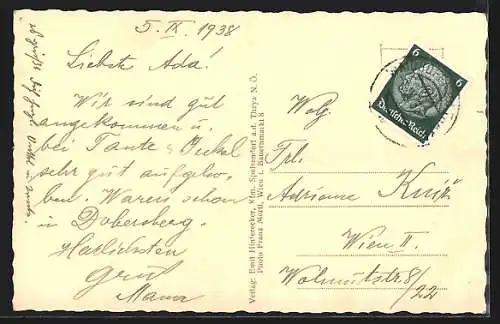 5. IX. 1938
Liebste Ada!
Wir sind gut
angekommen u.
bei Tante u. Onkel
sehr gut aufgeho-
ben. Waren schon
in Dobersberg.
Herzlichsten
Gruß
Mama
Verlag: Emil Hinterecker, Kfm. Speisendorf a.d. Thaya N.Ö.
Photo Franz Mörtl, Wien I. Bauernmarkt 8
6 6
Deutsches Reich
Wolg.
Frl.
Adrienne
Wien II.
8/
22